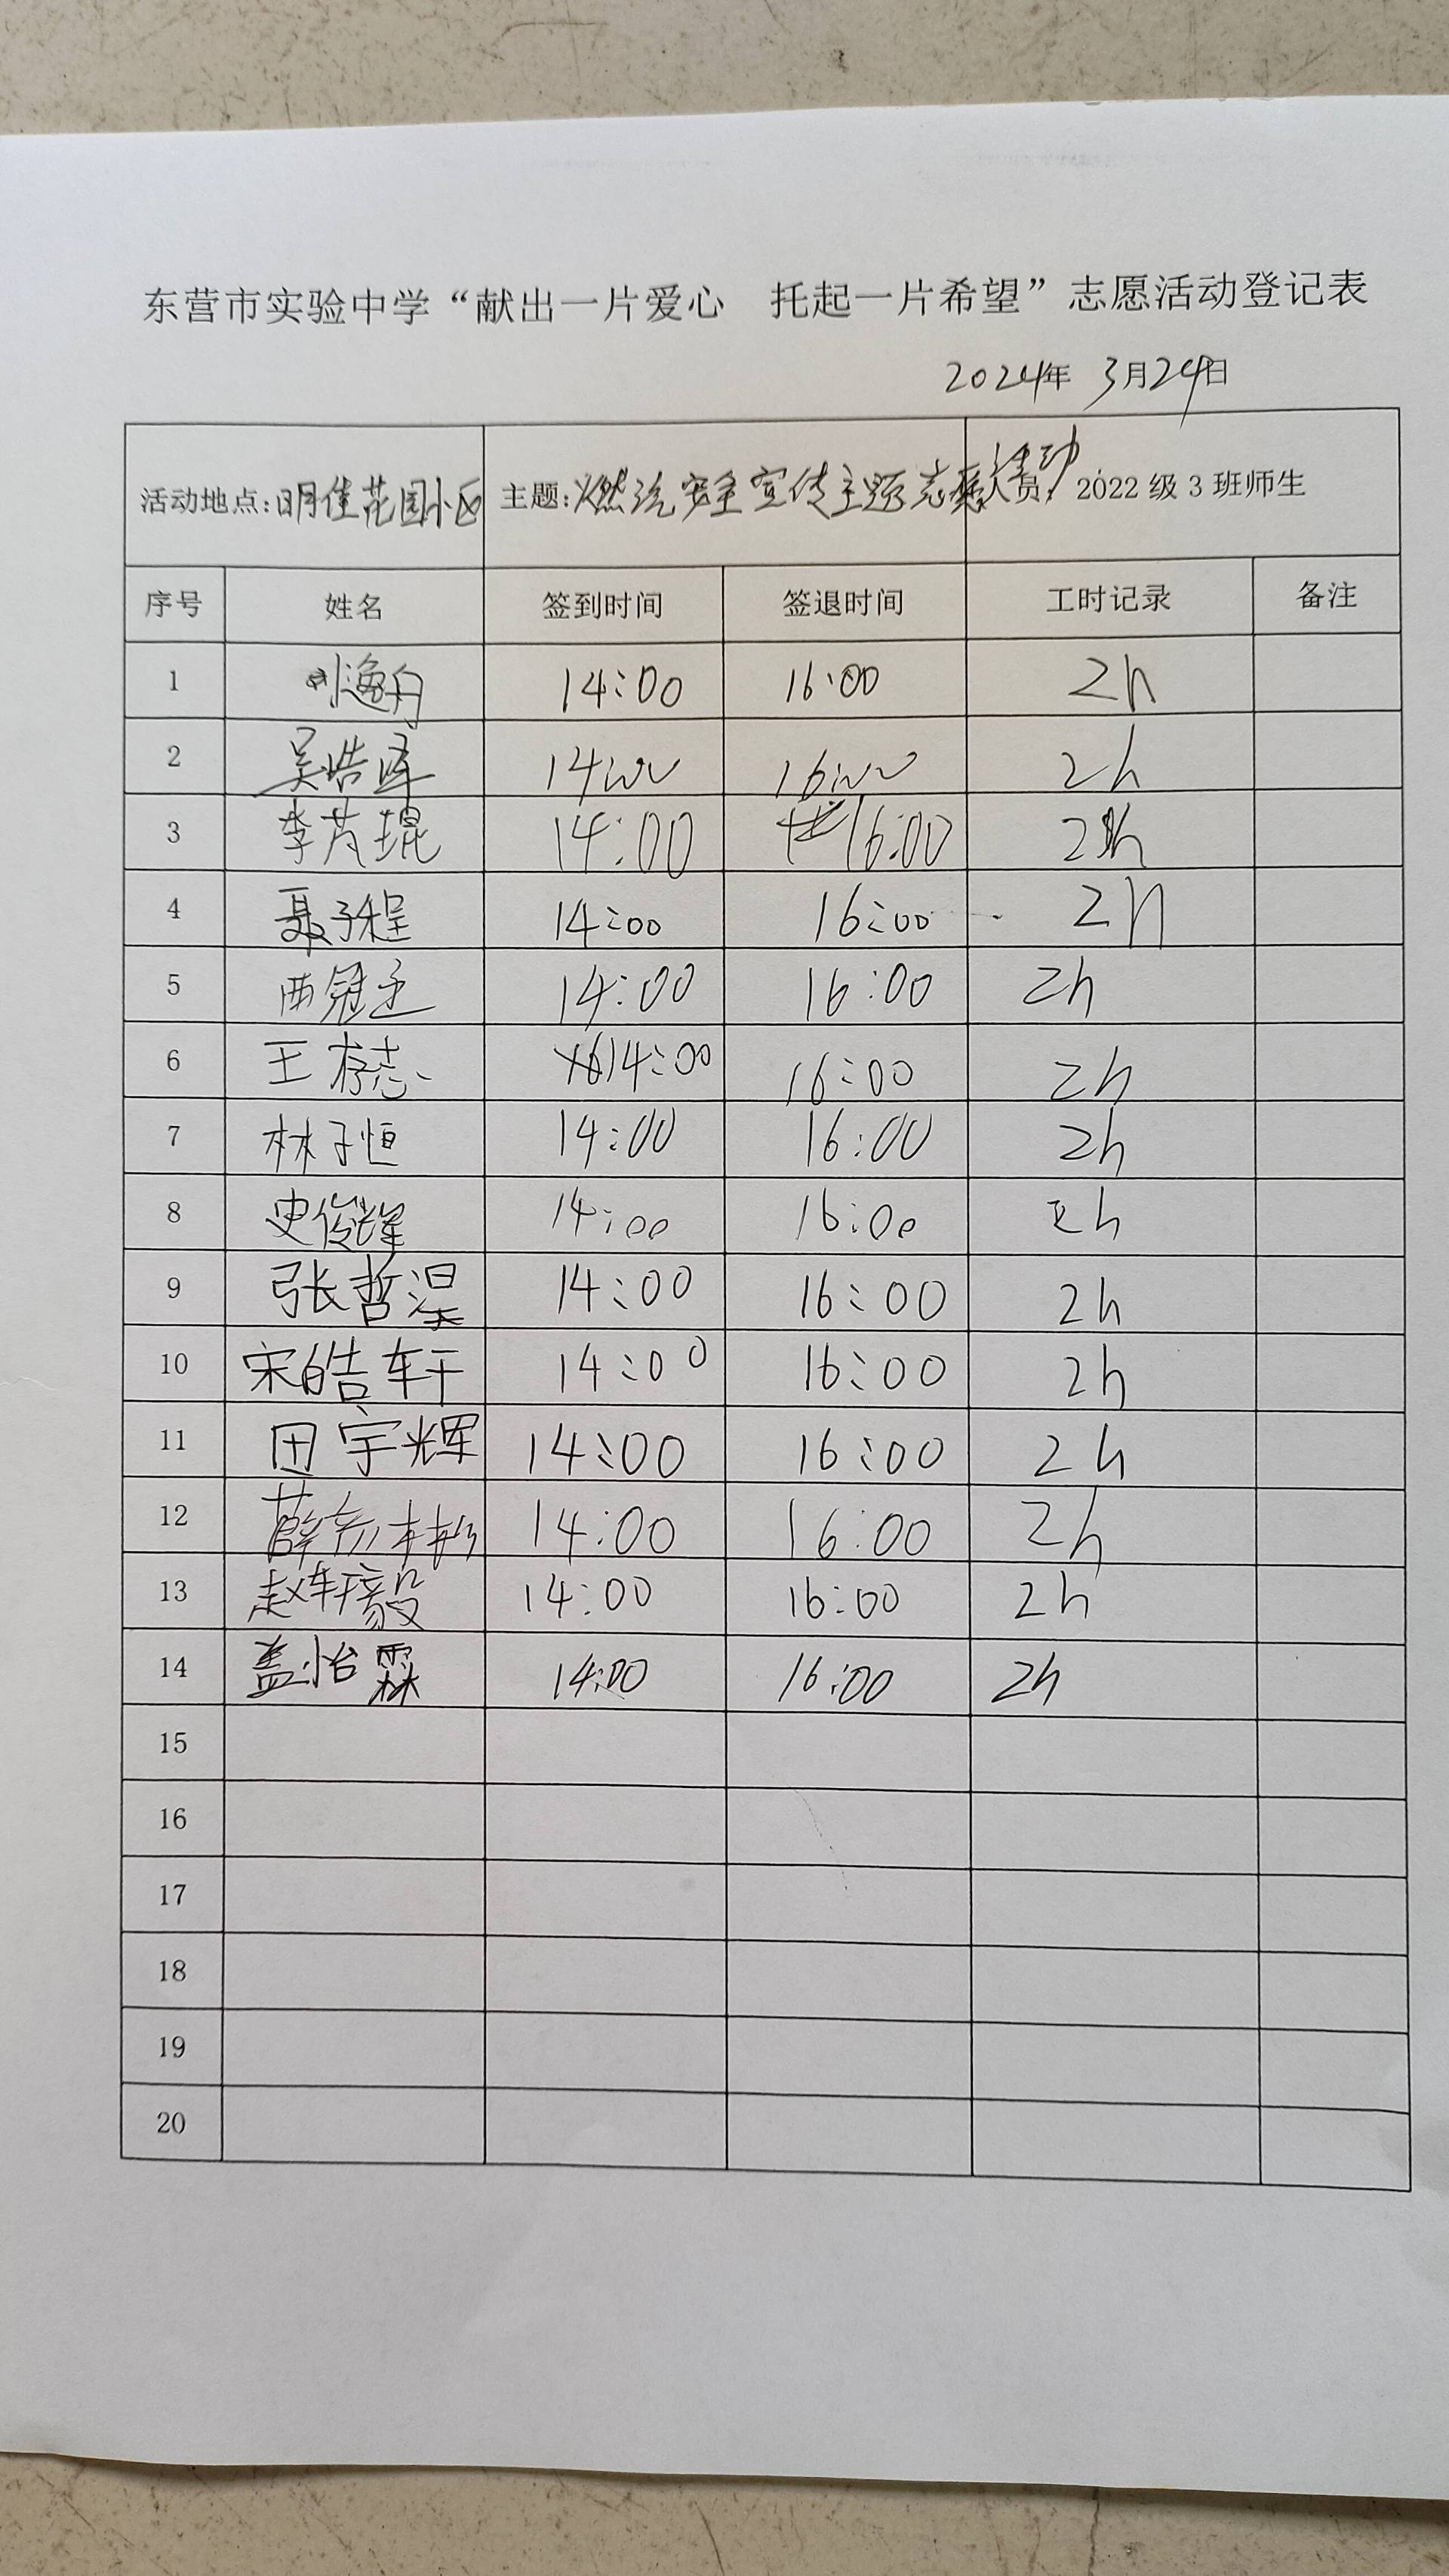 东营市实验中学“献出一片爱心 托起一片希望”志愿活动登记表
2024年 3月24日
活动地点:明佳花园小区 主题:燃气安全宣传主题志愿活动 人员:2022级3班师生
序号 姓名 签到时间 签退时间 工时记录 备注
1 刘逸舟 14:00 16:00 2h
2 吴浩泽 14:00 16:00 2h
3 李芃琨 14:00 16:00 2h
4 聂子程 14:00 16:00 2h
5 14:00 16:00 2h
6 王存志 14:00 16:00 2h
7 林子恒 14:00 16:00 2h
8 史俊辉 14:00 16:00 2h
9 张哲淏 14:00 16:00 2h
10 宋皓轩 14:00 16:00 2h
11 田宇辉 14:00 16:00 2h
12 薛 14:00 16:00 2h
13 赵轩毅 14:00 16:00 2h
14 盖怡霖 14:00 16:00 2h
15
16
17
18
19
20